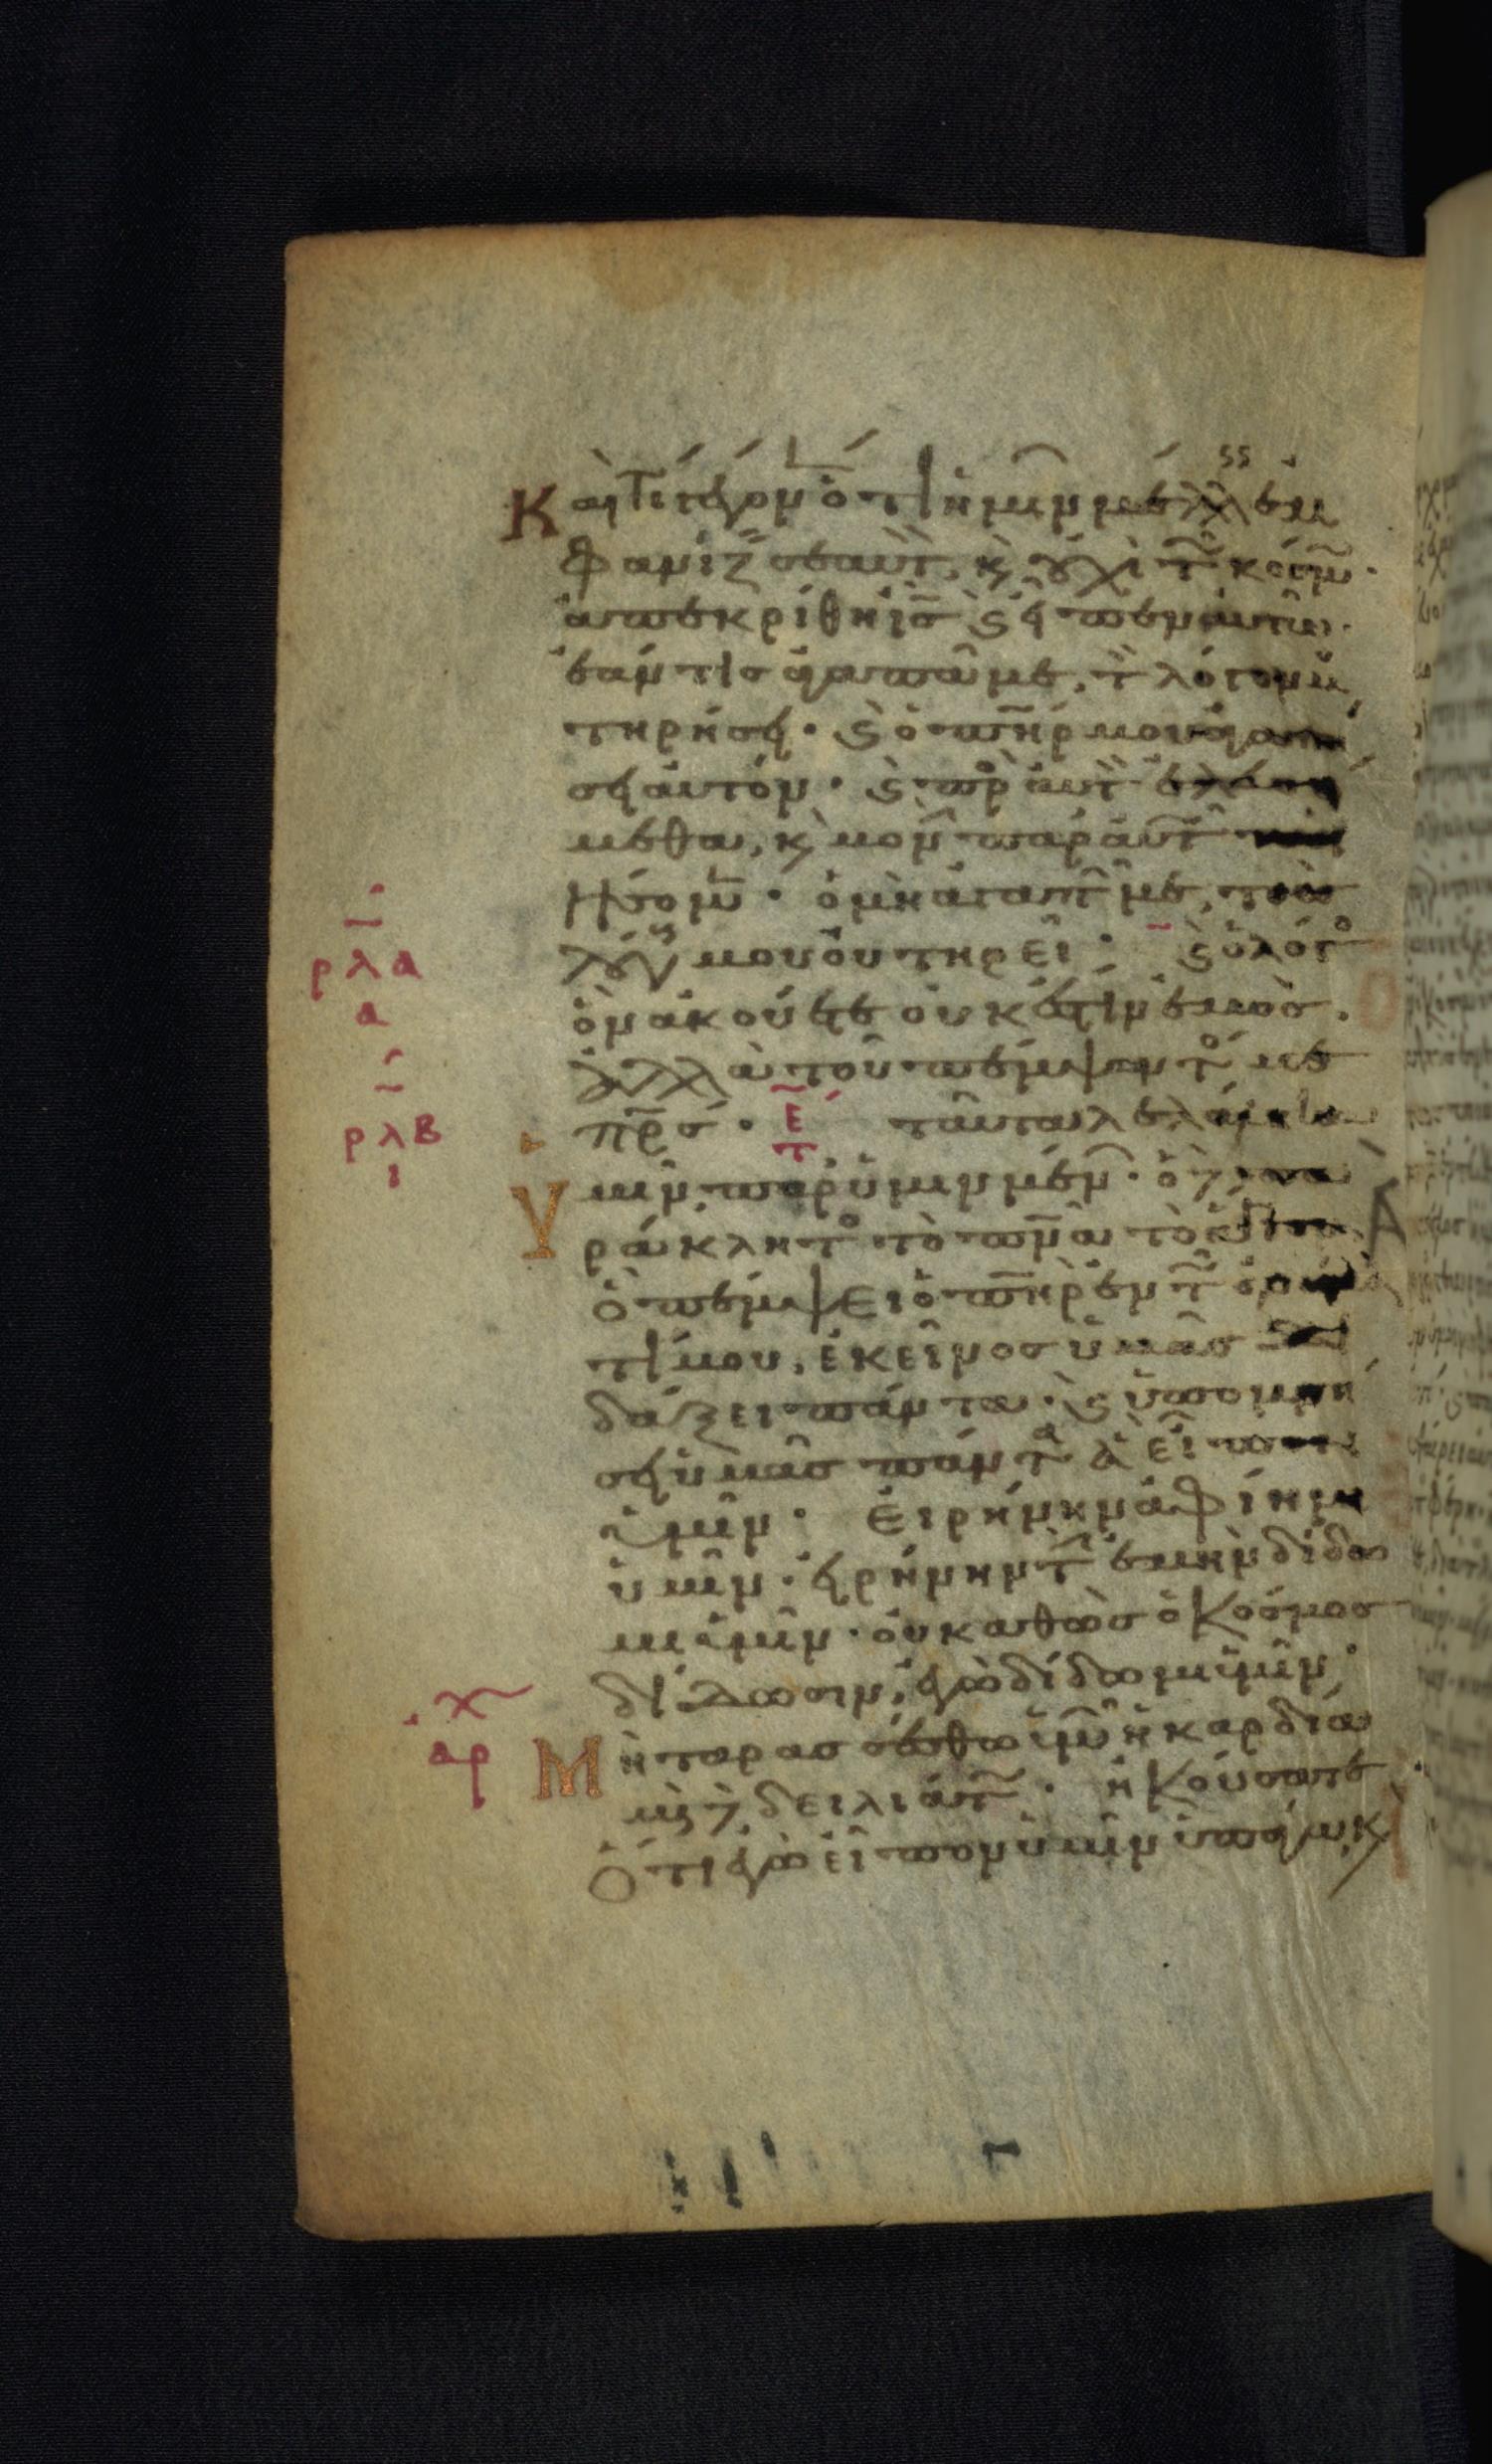 Καὶ τί γέγονεν ὅτι ἡμῖν μέλλεις ἐμ
φανίζειν σεαυτὸν, κ̀ οὐχὶ τῶ κόσμω·
ἀπεκρίθη ὁ ι̅ς̅ κ̀ εἶπεν αὐτῶ·
ἐάν τις ἀγαπᾶ με, τὸν λόγον μου
τηρήσει· κ̀ ὁ π̅η̅ρ μου ἀγαπή
σει αὐτόν· κ̀ πρὸς αὐτὸν ἐλευσό
μεθα, κ̀ μονὴν παρ' αὐτῶ ποι
ήσομεν· ὁ μὴ ἀγαπῶν με, τοὺς
ρλα λόγους μου οὐ τηρεῖ· κ̀ ὁ λόγος
α ὃν ἀκούετε οὐκ ἔστιν ἐμὸς·
ἀλλὰ τοῦ πέμψαντός με
ρλβ π̅ρ̅ς̅· ταῦτα λελάληκα
ι Ὑμῖν παρ' ὑμῖν μένων· ὁ δὲ πα
ράκλητος τὸ π̅ν̅α τὸ ἅγιον
ὃ πέμψει ὁ π̅η̅ρ ἐν τῶ ὀνόμα
τί μου, ἐκεῖνος ὑμᾶς δι
δάξει πάντα· κ̀ ὑπομνή
σει ὑμᾶς πάντα ἃ εἶπον
ὑμῖν· Εἰρήνην ἀφίημι
ὑμῖν· εἰρήνην τὴν ἐμὴν δίδω
μι ὑμῖν· οὐ καθὼς ὁ κόσμος
δίδωσιν, ἐγὼ δίδωμι ὑμῖν·
αρχ Μὴ ταρασσέσθω ὑμῶν ἡ καρδία
μὴ δὲ δειλιάτω· ἠκούσατε
ὅτι ἐγὼ εἶπον ὑμῖν ὑπάγω, κ̀